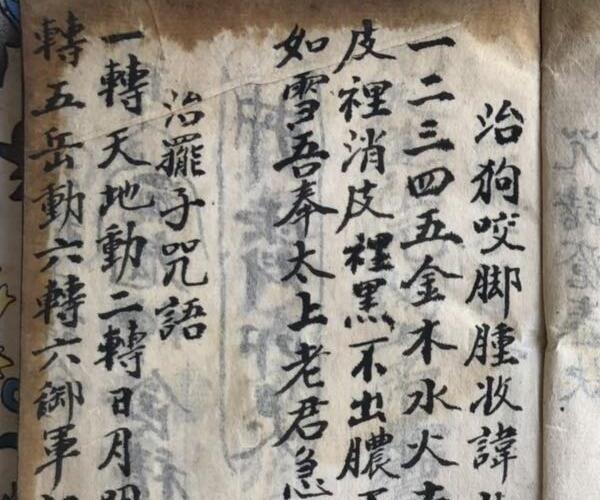 治狗咬脚腫妝諱
一二三四五金木水火
皮裡消皮裡黑不出膿
如雪吾奉太上老君急
治罷子咒語
一轉天地動二轉日月
轉五岳動六轉六御軍